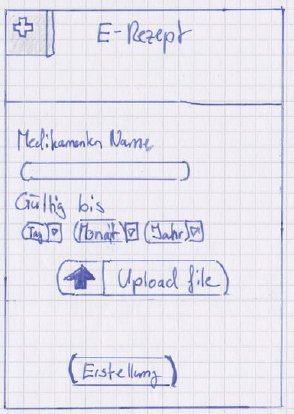 E-Rezept
Medikamenten Name
Gültig bis
Tag Monat Jahr
Upload file
Erstellung